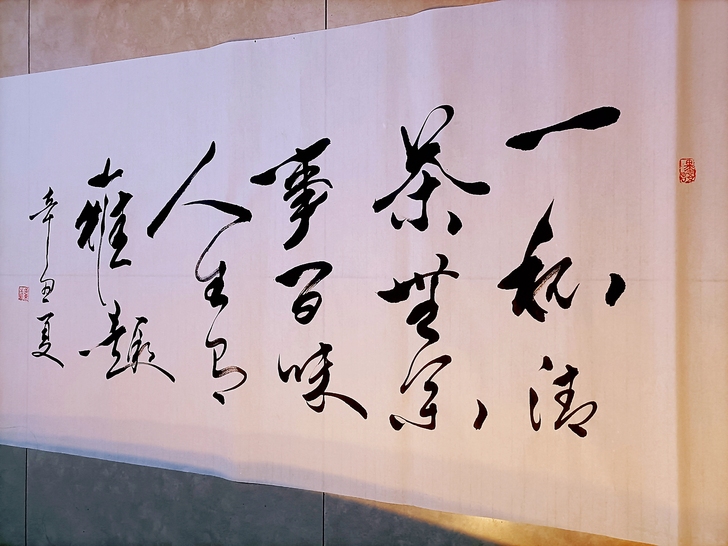 一清
茶無
事百味
人生
雅趣
辛丑夏